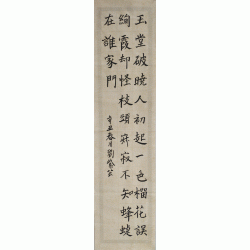 玉堂破曉人初起一色榴花誤
絢霞却怪枝頭寂不知蜂蝶
在誰家門
辛丑春月劉